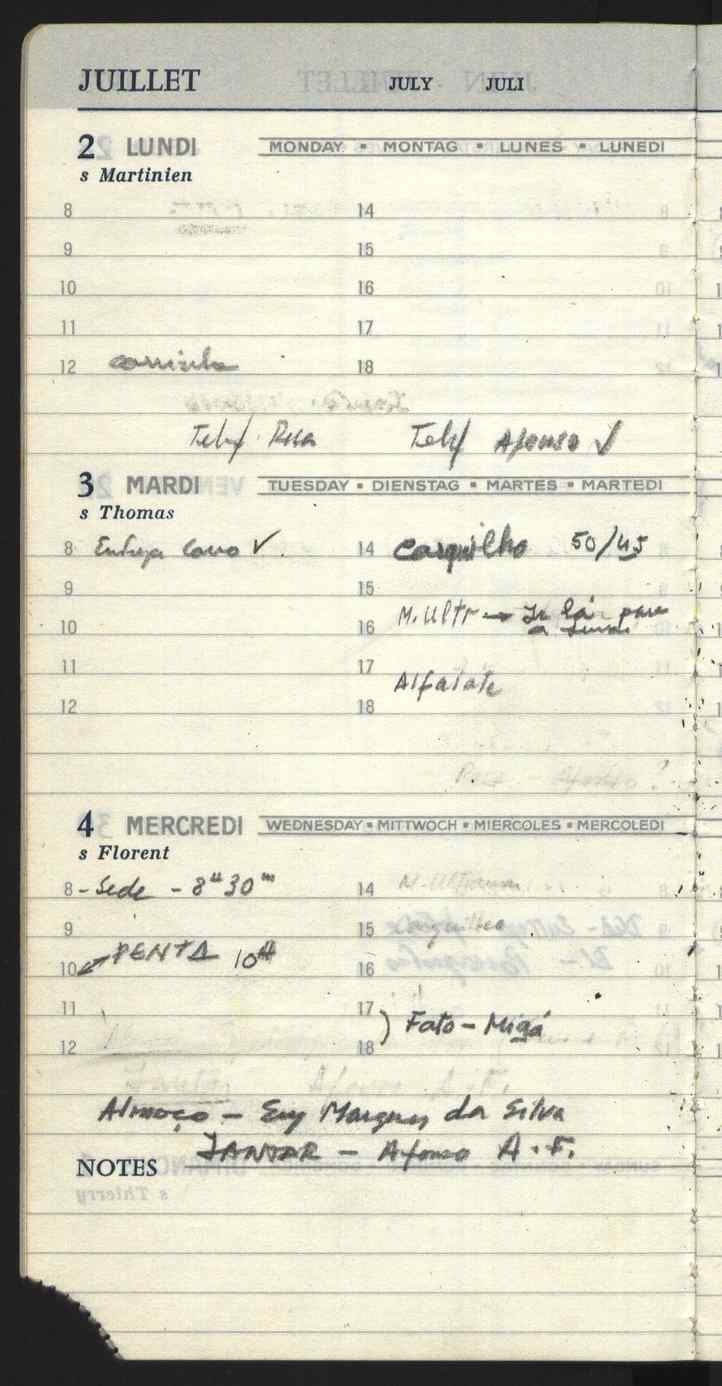 JUILLET JULY JULI
2 LUNDI MONDAY • MONTAG • LUNES • LUNEDI
s Martinien
8 14
9 15
10 16
11 17
12 18
Telef. Telef Afonso ✓
3 MARDI TUESDAY • DIENSTAG • MARTES • MARTEDI
s Thomas
8 Entrega Carro ✓. 14 Casquilho 50/45
9 15
M. Ultr → Ir lá para
10 16 a
11 17 Alfaiate
12 18
Afonso?
4 MERCREDI WEDNESDAY • MITTWOCH • MIERCOLES • MERCOLEDI
s Florent
8 - Sede - 8H 30m 14
9 15
10 PENTA 10H 16
11 17 ) Fato -
12 18
Jantar Afonso A. F.
Almoço - Marques da Silva
JANTAR - Afonso A. F.
NOTES